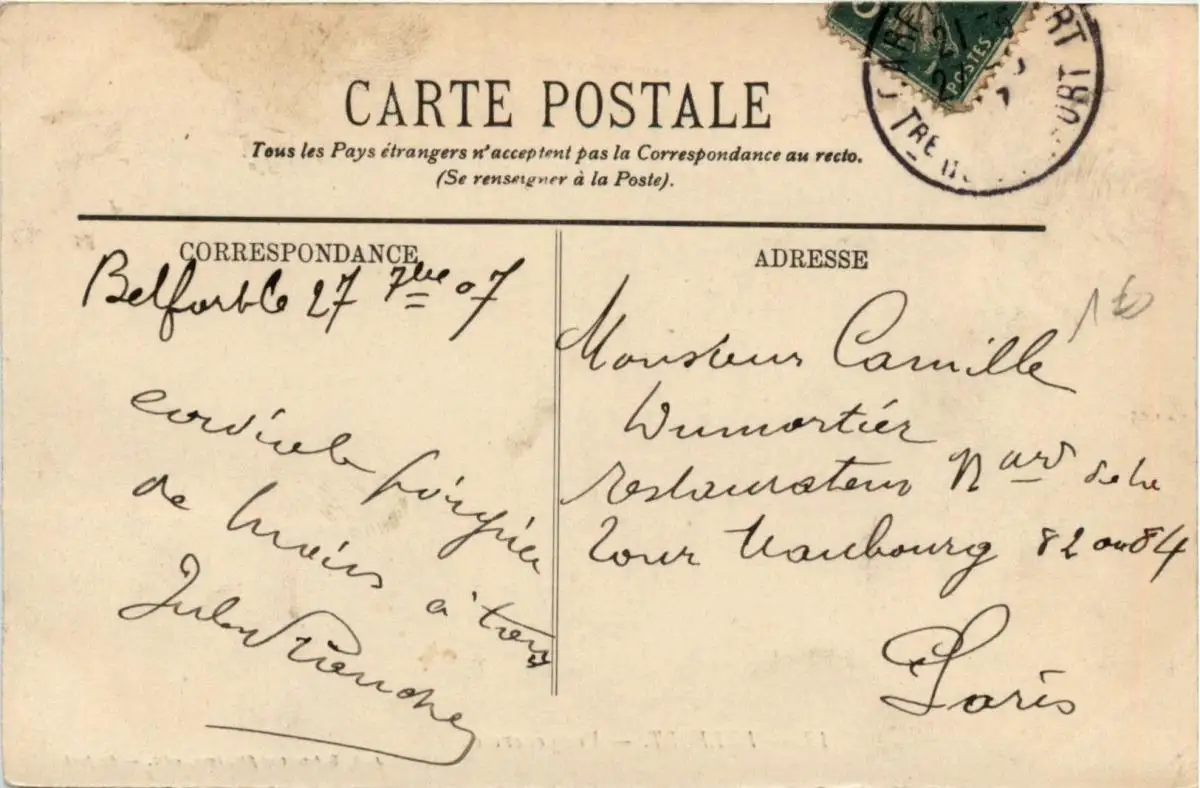 CARTE POSTALE
Tous les Pays étrangers n'acceptent pas la Correspondance au recto.
(Se renseigner à la Poste).
POSTES
CORRESPONDANCE
Belfort le 27 7bre 07
cordiale poignée
de mains à tous
Jules
ADRESSE
Monsieur Camille
Dumortier
restaurateur
de la
Tour Maubourg 82 ou 84
Paris